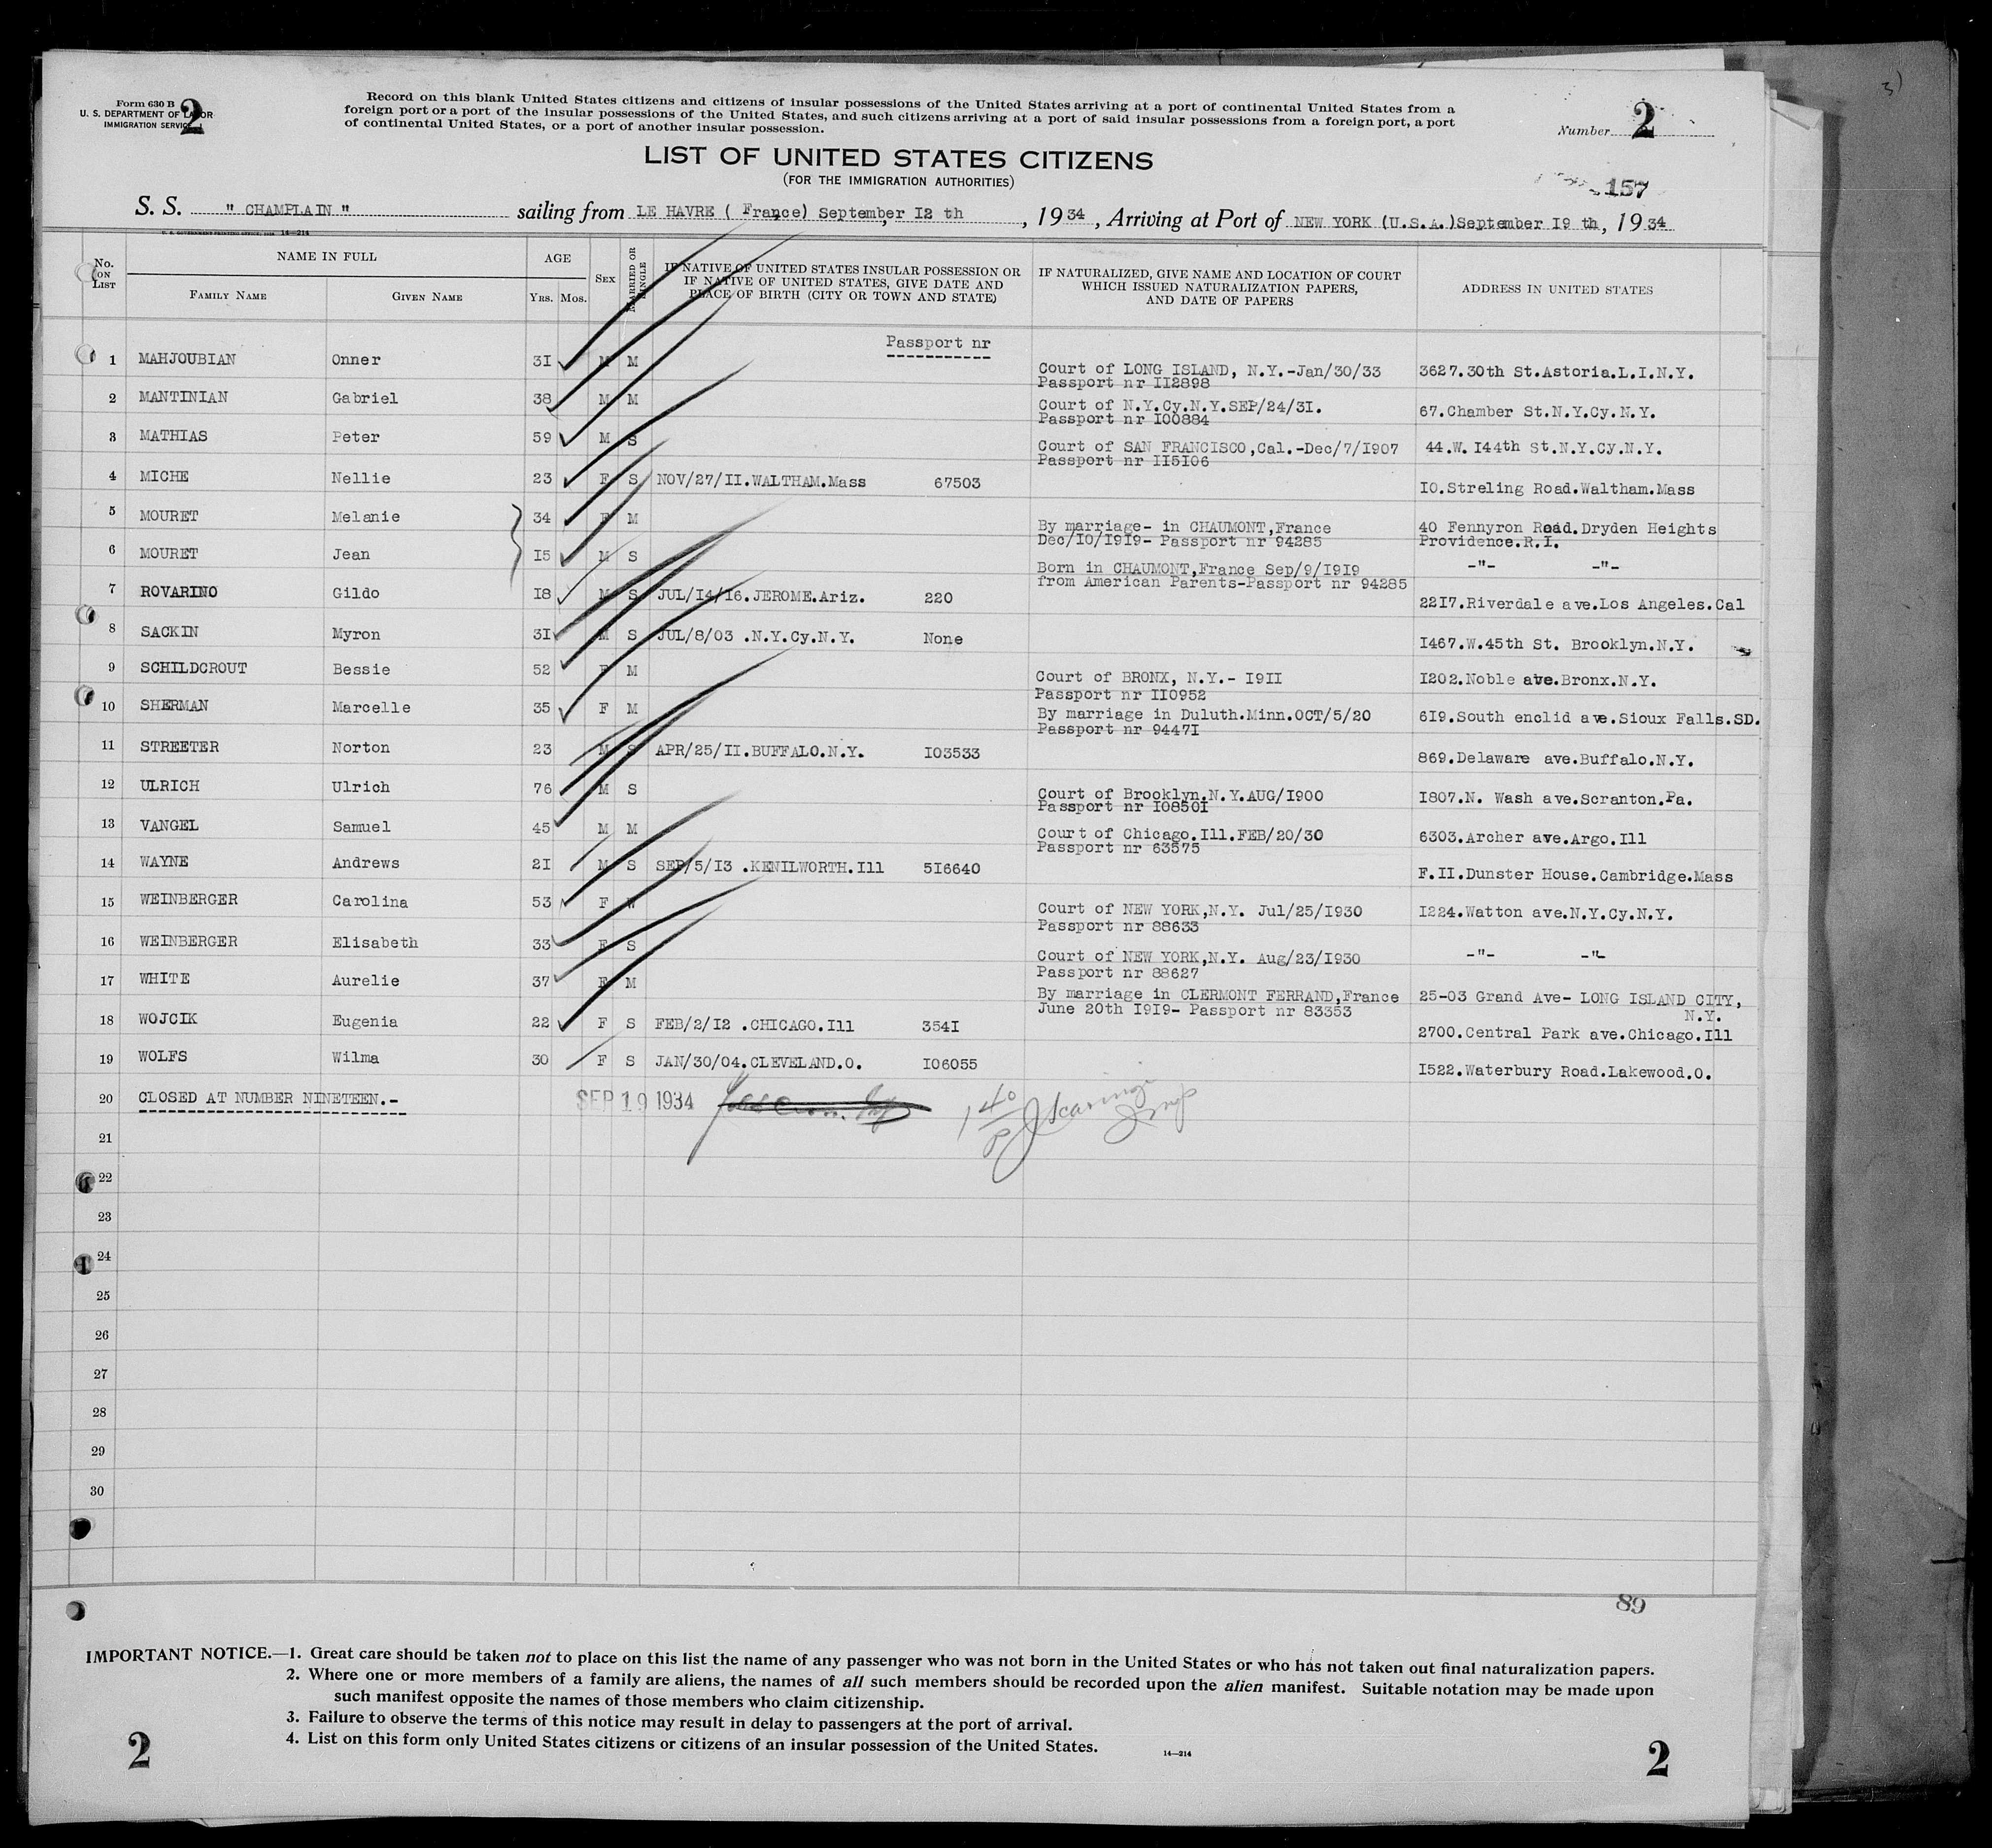 Form 630 B
U. S. DEPARTMENT OF LABOR
IMMIGRATION SERVICE
2
Record on this blank United States citizens and citizens of insular possessions of the United States arriving at a port of continental United States from a
foreign port or a port of the insular possessions of the United States, and such citizens arriving at a port of said insular possessions from a foreign port, a port
of continental United States, or a port of another insular possession.
Number 2
LIST OF UNITED STATES CITIZENS
(FOR THE IMMIGRATION AUTHORITIES)
157
S. S. " CHAMPLAIN " sailing from LE HAVRE ( France) September, I2 th, 1934, Arriving at Port of NEW YORK (U.S.A.)September I9 th, 1934
U. S. GOVERNMENT PRINTING OFFICE 14—214
No. ON LIST
NAME IN FULL
FAMILY NAME
GIVEN NAME
AGE
YRS. MOS.
SEX
MARRIED OR SINGLE
IF NATIVE OF UNITED STATES INSULAR POSSESSION OR
IF NATIVE OF UNITED STATES, GIVE DATE AND
PLACE OF BIRTH (CITY OR TOWN AND STATE)
IF NATURALIZED, GIVE NAME AND LOCATION OF COURT
WHICH ISSUED NATURALIZATION PAPERS,
AND DATE OF PAPERS
ADDRESS IN UNITED STATES
Passport nr
1 MAHJOUBIAN Onner 3I M M Court of LONG ISLAND, N.Y.-Jan/30/33 3627.30th St.Astoria.L.I.N.Y.
Passport nr II2898
2 MANTINIAN Gabriel 38 M M Court of N.Y.Cy.N.Y.SEP/24/3I. 67.Chamber St.N.Y.Cy.N.Y.
Passport nr I00884
3 MATHIAS Peter 59 M S Court of SAN FRANCISCO,Cal.-Dec/7/I907 44.W.I44th St.N.Y.Cy.N.Y.
Passport nr II5I06
4 MICHE Nellie 23 F S NOV/27/II.WALTHAM.Mass 67503 I0.Streling Road.Waltham.Mass
5 MOURET Melanie 34 F M By marriage- in CHAUMONT,France 40 Fennyron Road.Dryden Heights
Dec/I0/I9I9- Passport nr 94285 Providence.R.I.
6 MOURET Jean I5 M S Born in CHAUMONT,France Sep/9/I9I9 -"- -"-
from American Parents-Passport nr 94285
7 ROVARINO Gildo I8 M S JUL/I4/I6.JEROME.Ariz. 220 22I7.Riverdale ave.Los Angeles.Cal
8 SACKIN Myron 3I M S JUL/8/03 .N.Y.Cy.N.Y. None I467.W.45th St. Brooklyn.N.Y.
9 SCHILDCROUT Bessie 52 F M Court of BRONX, N.Y.- I9II I202.Noble ave.Bronx.N.Y.
Passport nr II0952
10 SHERMAN Marcelle 35 F M By marriage in Duluth.Minn.OCT/5/20 6I9.South enclid ave.Sioux Falls.SD.
Passport nr 9447I
11 STREETER Norton 23 M S APR/25/II.BUFFALO.N.Y. I03533 869.Delaware ave.Buffalo.N.Y.
12 ULRICH Ulrich 76 M S Court of Brooklyn.N.Y.AUG/I900 I807.N. Wash ave.Scranton.Pa.
Passport nr I0850I
13 VANGEL Samuel 45 M M Court of Chicago.Ill.FEB/20/30 6303.Archer ave.Argo.Ill
Passport nr 63575
14 WAYNE Andrews 2I M S SEP/5/I3 .KENILWORTH.Ill 5I6640 F.II.Dunster House.Cambridge.Mass
15 WEINBERGER Carolina 53 F W Court of NEW YORK,N.Y. Jul/25/I930 I224.Watton ave.N.Y.Cy.N.Y.
Passport nr 88633
16 WEINBERGER Elisabeth 33 F S Court of NEW YORK,N.Y. Aug/23/I930 -"- -"-
Passport nr 88627
17 WHITE Aurelie 37 F M By marriage in CLERMONT FERRAND,France 25-03 Grand Ave- LONG ISLAND CITY,
June 20th I9I9- Passport nr 83353 N.Y.
18 WOJCIK Eugenia 22 F S FEB/2/I2 .CHICAGO.Ill 354I 2700.Central Park ave.Chicago.Ill
19 WOLFS Wilma 30 F S JAN/30/04.CLEVELAND.O. I06055 I522.Waterbury Road.Lakewood.O.
20 CLOSED AT NUMBER NINETEEN.- SEP 19 1934
21
22
23
24
25
26
27
28
29
30
89
IMPORTANT NOTICE.—1. Great care should be taken not to place on this list the name of any passenger who was not born in the United States or who has not taken out final naturalization papers.
2. Where one or more members of a family are aliens, the names of all such members should be recorded upon the alien manifest. Suitable notation may be made upon
such manifest opposite the names of those members who claim citizenship.
3. Failure to observe the terms of this notice may result in delay to passengers at the port of arrival.
4. List on this form only United States citizens or citizens of an insular possession of the United States.
14—214
2
2